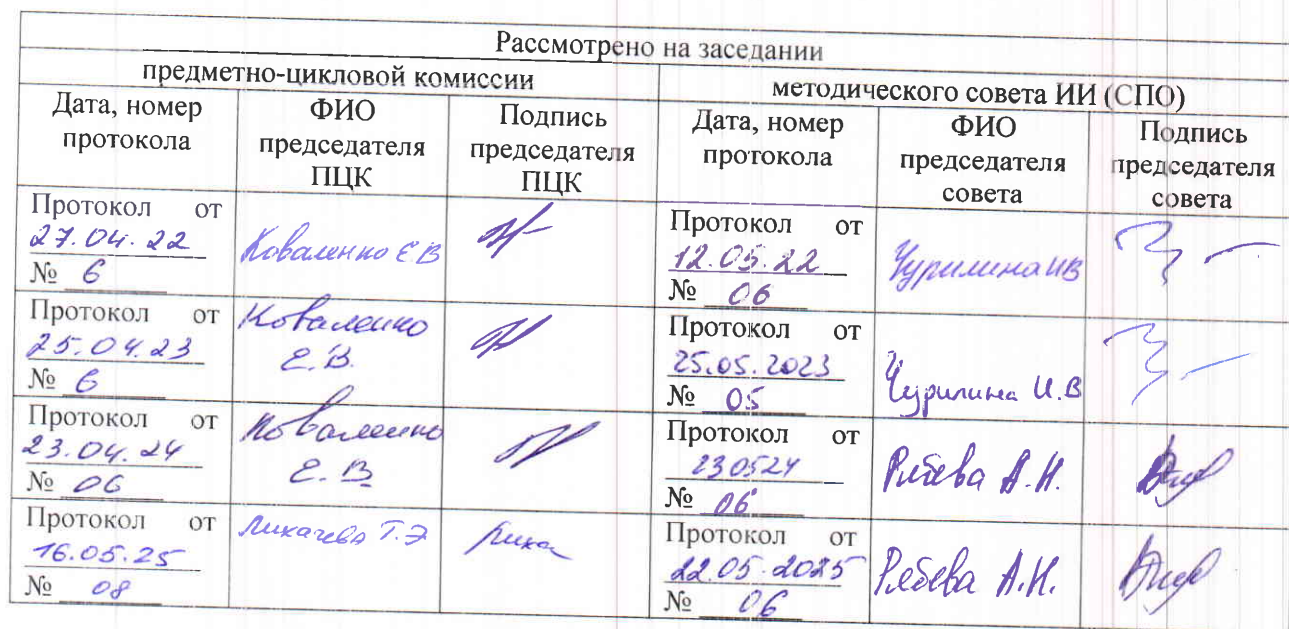 Рассмотрено на заседании
предметно-цикловой комиссии
методического совета ИИ (СПО)
Дата, номер
протокола
ФИО
председателя
ПЦК
Подпись
председателя
ПЦК
Дата, номер
протокола
ФИО
председателя
совета
Подпись
председателя
совета
Протокол от
27.04.22
№ 6
Коваленко Е В
Протокол от
12.05.22
№ 06
Чурилина ИВ
Протокол от
25.04.23
№ 6
Коваленко
Е.В.
Протокол от
25.05.2023
№ 05
Чурилина И.В
Протокол от
23.04.24
№ 06
Коваленко
Е.В.
Протокол от
230524
№ 06
А.Н.
Протокол от
16.05.25
№ 08
Лихачева Т.Э
Протокол от
22.05.2025
№ 06
А.Н.